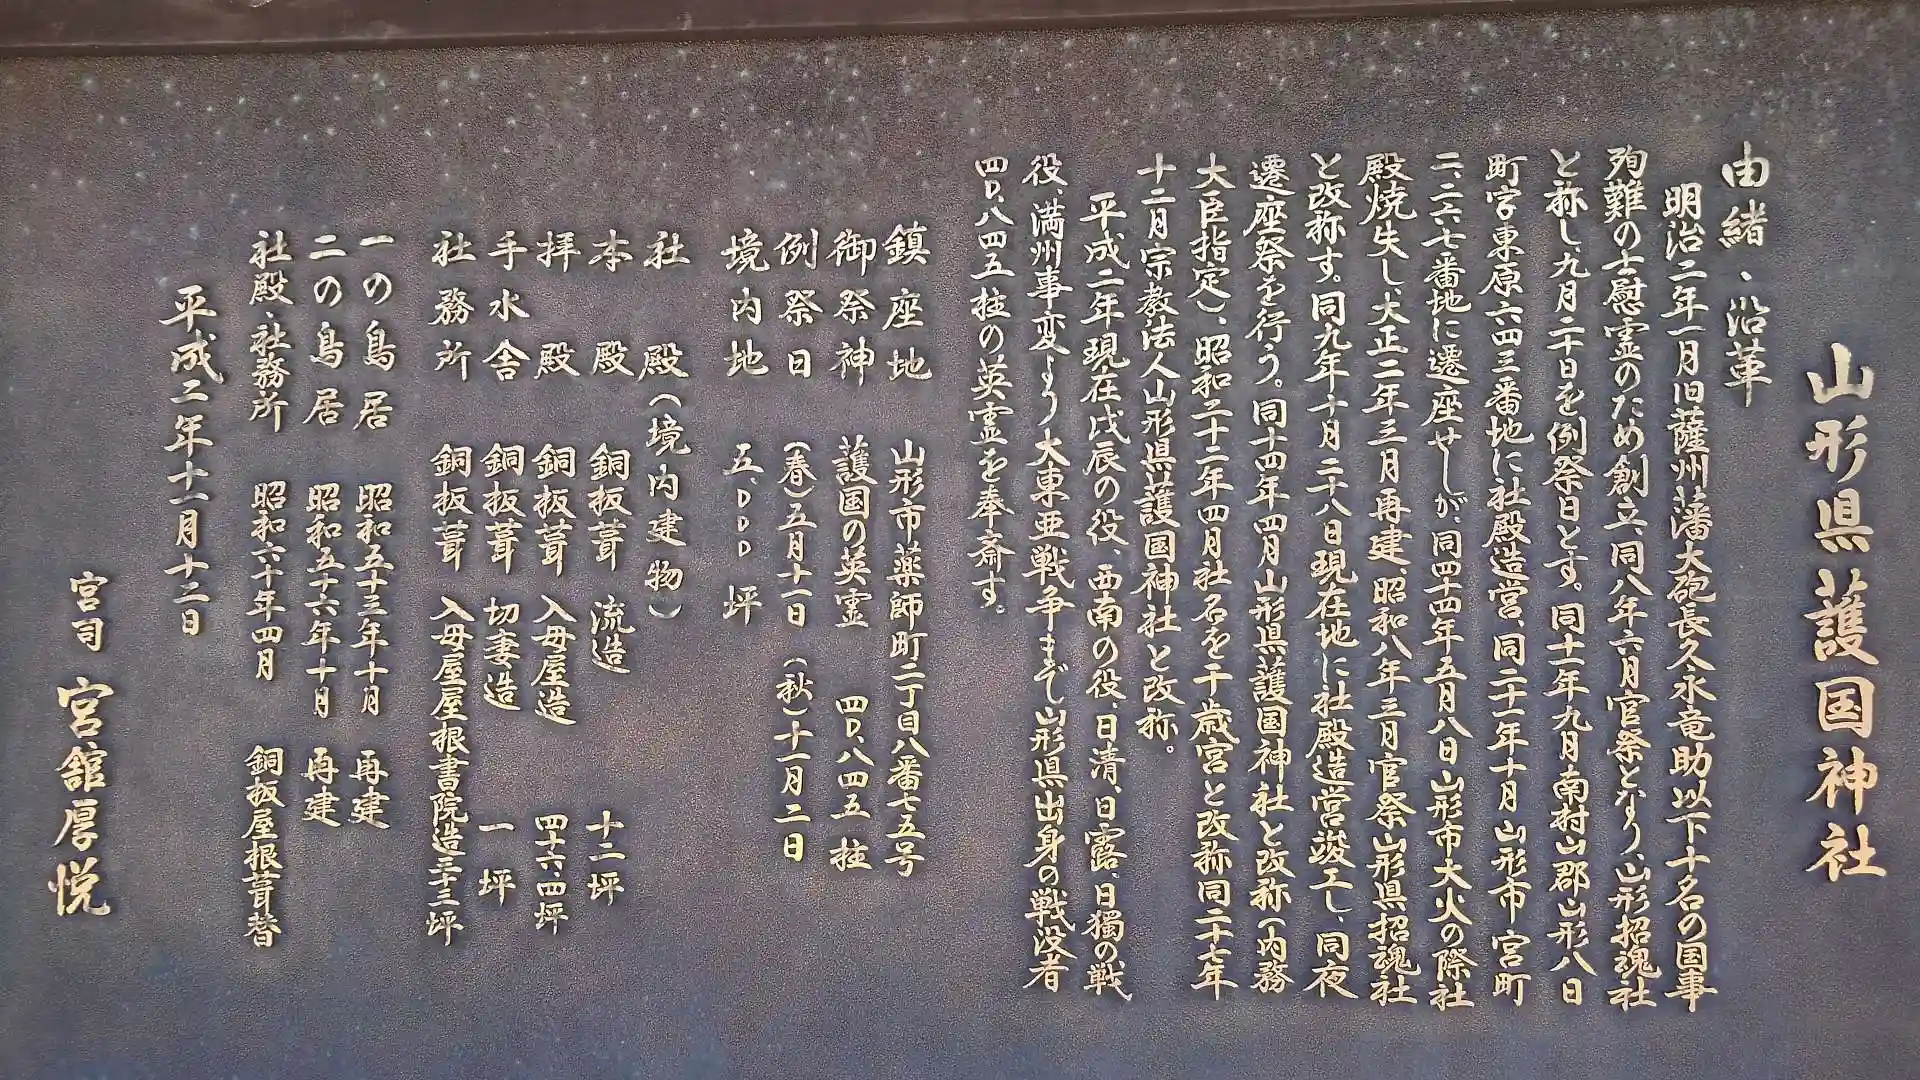 山形県護国神社
由緒、沿革
明治二年一月旧薩州藩大砲長久永竜助以下十名の国事
殉難の士慰霊のため創立、同八年六月官祭となり、山形招魂社
と称し九月二十日を例祭日とす。同十一年九月南村山郡山形八日
町字東原六四三番地に社殿造営、同二十一年十月山形市宮町
二、二六七番地に遷座せしが、同四十四年五月八日山形市大火の際社
殿焼失し、大正二年三月再建、昭和八年三月官祭山形県招魂社
と改称す。同九年十月二十八日現在地に社殿造営竣工し、同夜
遷座祭を行う。同十四年四月山形県護国神社と改称(内務
大臣指定)、昭和二十二年四月社名を千歳宮と改称同二十七年
十二月宗教法人山形県護国神社と改称。
平成二年現在戊辰の役、西南の役、日清、日露、日獨の戦
役、満州事変より大東亜戦争まで山形県出身の戦没者
四〇、八四五柱の英霊を奉斎す。
鎮座地 山形市薬師町二丁目八番七五号
御祭神 護国の英霊 四〇、八四五柱
例祭日 (春)五月十一日 (秋)十一月二日
境内地 五、〇〇〇坪
社殿(境内建物)
本殿 銅板葺 流造 十二坪
拝殿 銅板葺 入母屋造 四十六、四坪
手水舎 銅板葺 切妻造 一坪
社務所 銅板葺 入母屋屋根書院造 三十三坪
一の鳥居 昭和五十三年十月 再建
二の鳥居 昭和五十六年十月 再建
社殿、社務所 昭和六十年四月 銅板屋根葺替
平成二年十一月十二日
宮司 宮舘厚悦